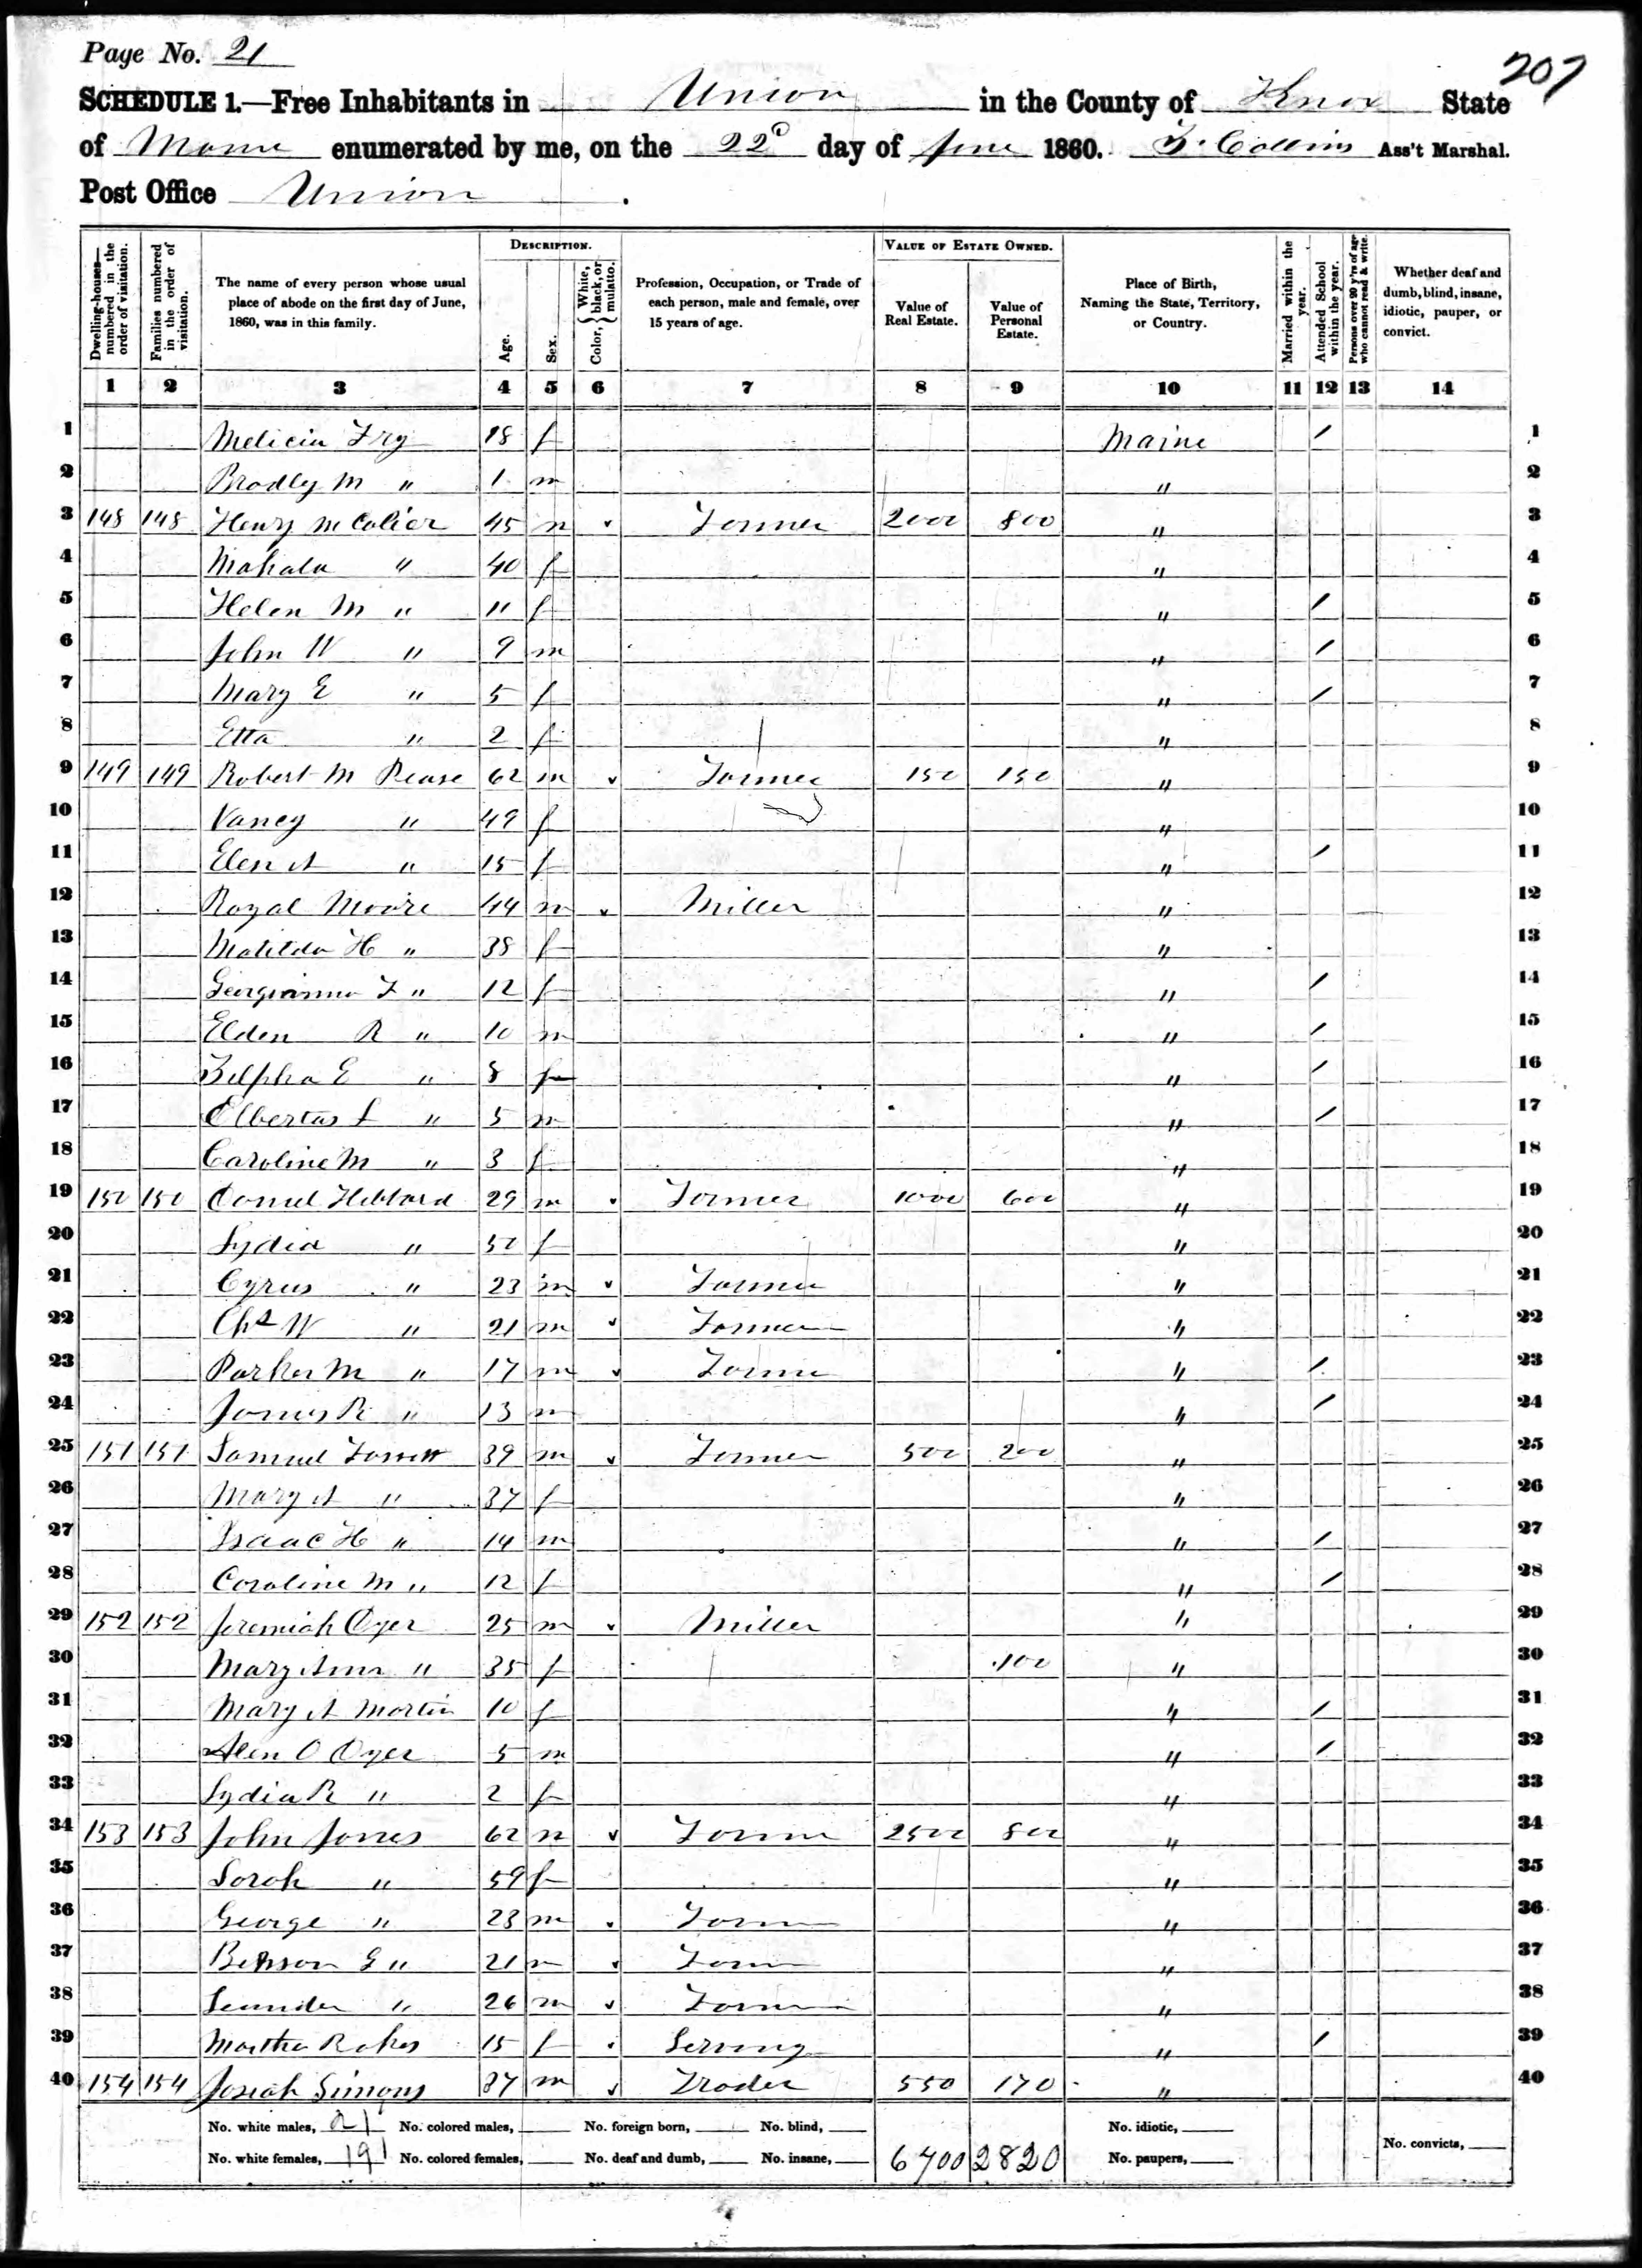 Page No. 21
207
SCHEDULE 1.—Free Inhabitants in Union in the County of Knox State
of Maine enumerated by me, on the 22d day of June 1860. Z. Collins Ass't Marshal.
Post Office Union.
DESCRIPTION. VALUE OF ESTATE OWNED.
Dwelling-houses—numbered in the order of visitation.
Families numbered in the order of visitation.
The name of every person whose usual place of abode on the first day of June, 1860, was in this family.
Age.
Sex.
Color, {White, black, or mulatto.
Profession, Occupation, or Trade of each person, male and female, over 15 years of age.
Value of Real Estate.
Value of Personal Estate.
Place of Birth, Naming the State, Territory, or Country.
Married within the year.
Attended School within the year.
Persons over 20 y'rs of age who cannot read & write.
Whether deaf and dumb, blind, insane, idiotic, pauper, or convict.
1 2 3 4 5 6 7 8 9 10 11 12 13 14
1 Melicia Fry 18 f Maine / 1
2 Bradly M " 1 m " 2
3 148 148 Henry McColier 45 m Farmer 2000 800 " 3
4 Mahala " 40 f " 4
5 Helen M " 11 f " / 5
6 John W " 9 m " / 6
7 Mary E " 5 f " / 7
8 Etta " 2 f " 8
9 149 149 Robert M Pease 62 m Farmer 150 150 " 9
10 Nancy " 49 f " 10
11 Elen A " 15 f " / 11
12 Royal Moore 44 m Miller " 12
13 Matilda H " 38 f " 13
14 Georgianna F " 12 f " / 14
15 Elden R " 10 m " / 15
16 Zilpha E " 8 f " / 16
17 Elbertus L " 5 m " / 17
18 Caroline M " 3 f " 18
19 150 150 Hibbard 29 m Farmer 1000 600 " 19
20 Lydia " 50 f " 20
21 Cyrus " 23 m Farmer " 21
22 Chs W " 21 m Farmer " 22
23 Parker M " 17 m Farmer " / 23
24 James R " 13 m " / 24
25 151 151 Samuel 39 m Farmer 500 200 " 25
26 Mary A " 37 f " 26
27 Isaac H " 14 m " / 27
28 Caroline M " 12 f " / 28
29 152 152 Jeremiah Oyer 25 m Miller " 29
30 Mary Ann " 35 f 100 " 30
31 Mary A Martin 10 f " / 31
32 Alen O Oyer 5 m " / 32
33 Lydia R " 2 f " 33
34 153 153 John Jones 62 m Farmer 2500 800 " 34
35 Sarah " 59 f " 35
36 George " 23 m Farmer " 36
37 E " 21 m Farmer " 37
38 Leander " 26 m Farmer " 38
39 Martha Rokes 15 f Serving " / 39
40 154 154 Josiah Simons 37 m Trader 550 170 " 40
No. white males, 21 No. colored males, No. foreign born, No. blind, No. idiotic,
No. white females, 19 No. colored females, No. deaf and dumb, No. insane, 6700 2820 No. paupers, No. convicts,